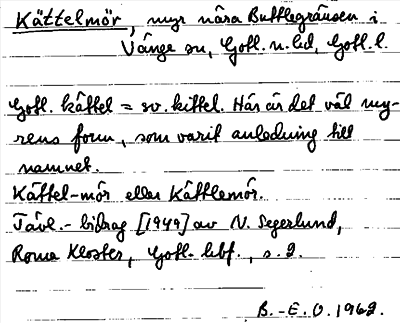 Kättelmör, myr nära Buttlegränsen i
Vänge sn, Gotl. n. hd, Gotl. l.
Gotl. kättel = sv. kittel. Här är det väl my-
rens form, som varit anledning till
namnet.
Kättel-mör eller Kättlemör.
Tävl.-bidrag [1949] av N. Segerlund,
Roma Kloster, Gotl. hbf., s. 2.
B.-E. O. 1962.